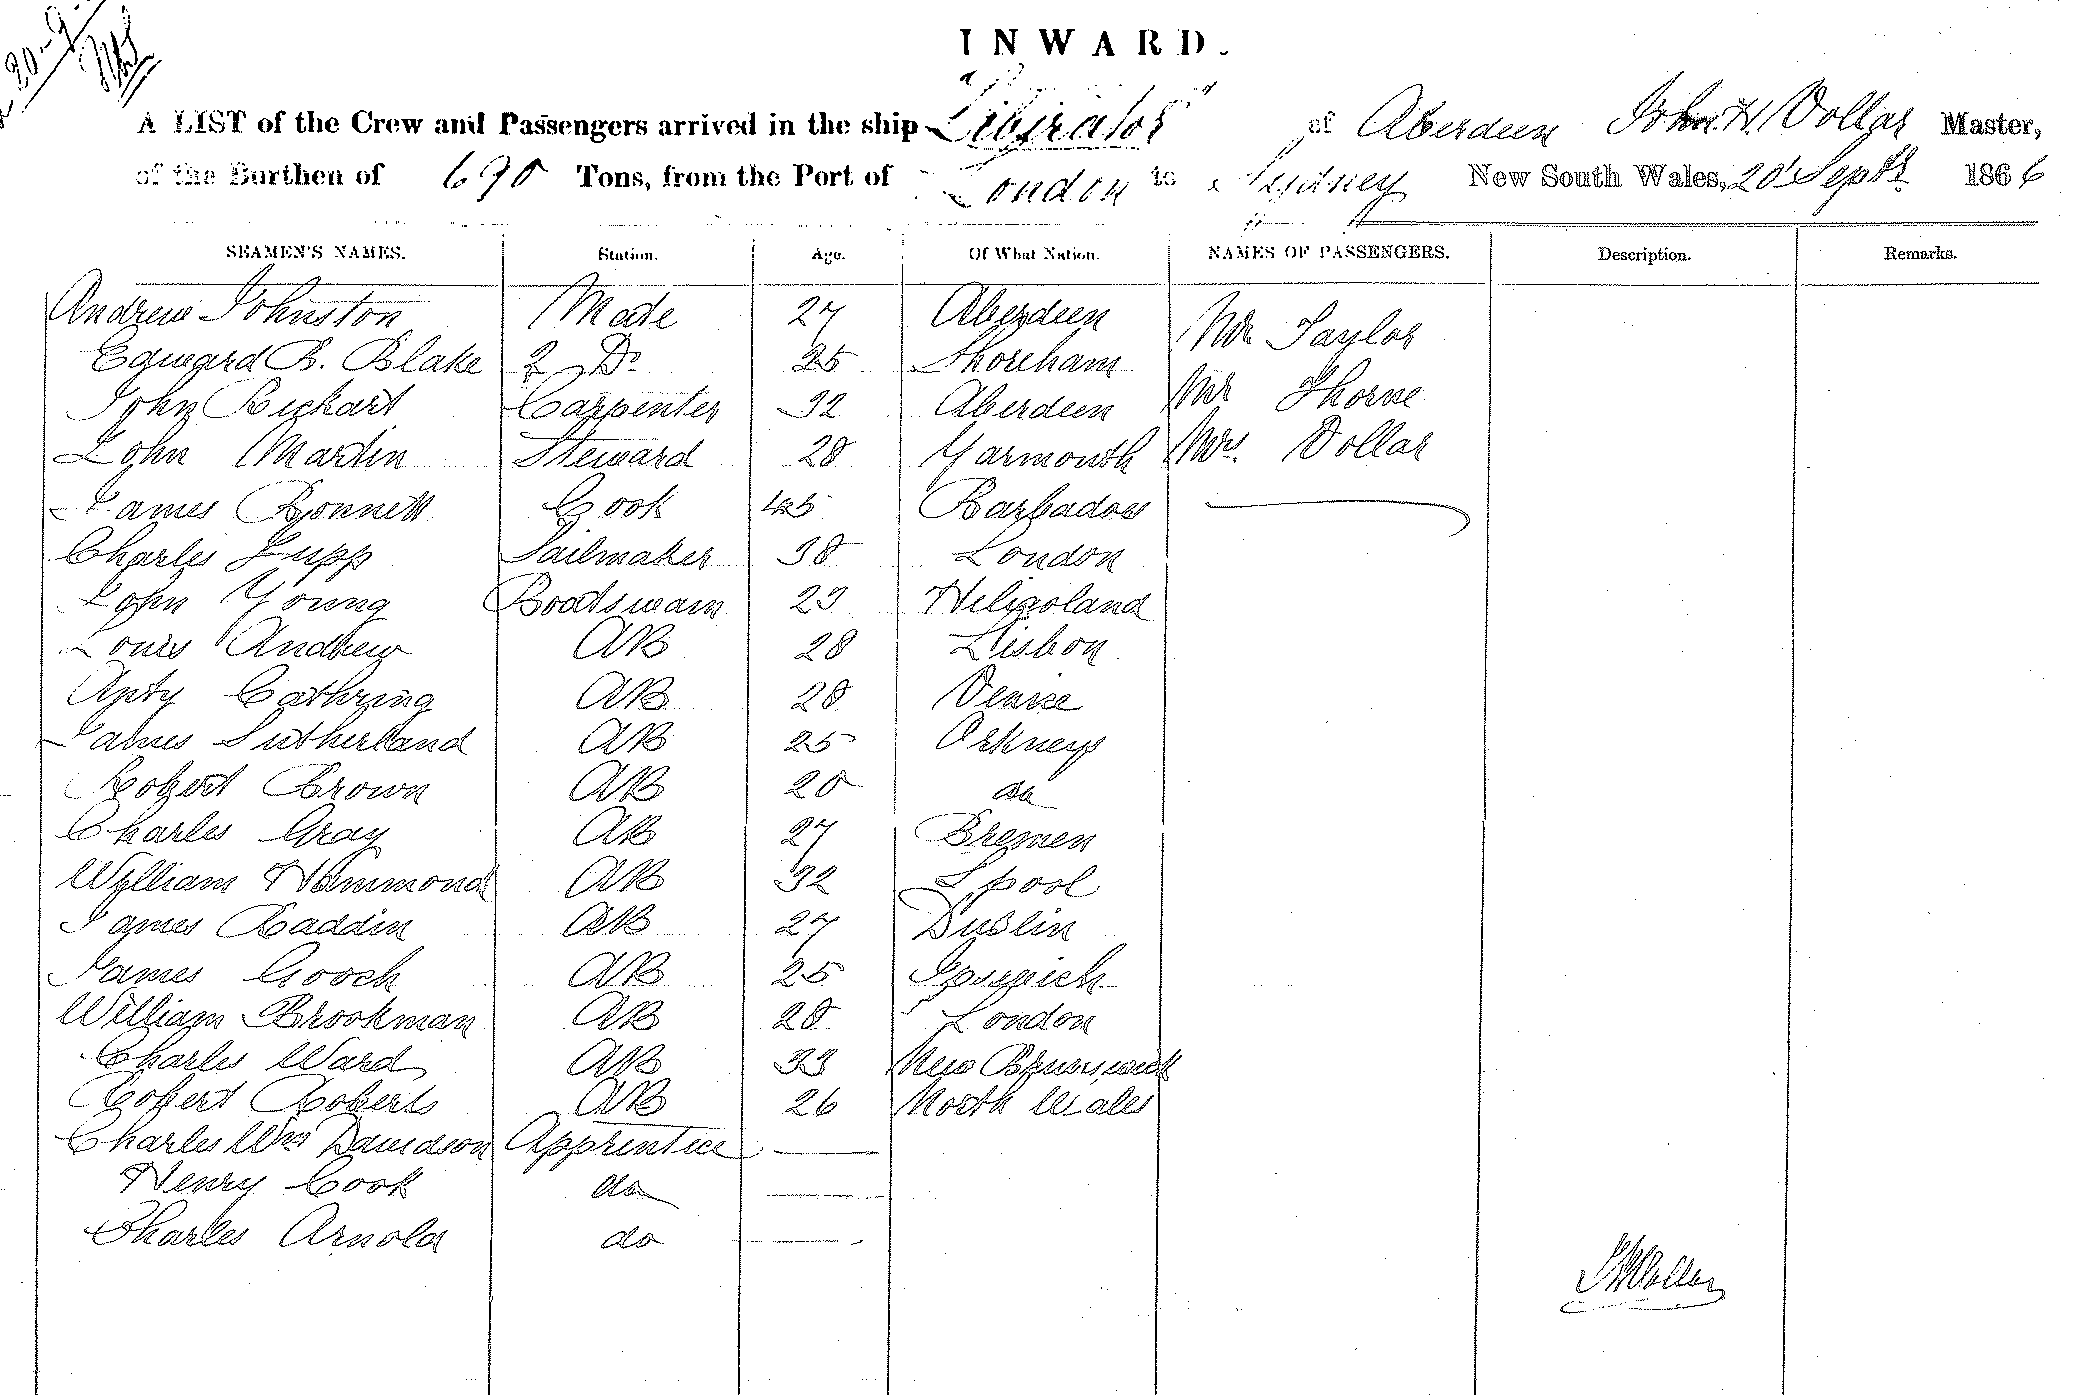 20-9
INWARD.
A LIST of the Crew and Passengers arrived in the ship "Liberator" of Aberdeen John H. Dollar Master,
of the Burthen of 690 Tons, from the Port of London to Sydney New South Wales, 20 Septr 1866
SEAMEN'S NAMES. Station. Age. Of What Nation. NAMES OF PASSENGERS. Description. Remarks.
Andrew Johnston Mate 27 Aberdeen Mr Taylor
Edward B. Blake 2 Do 25 Shoreham
John Richart Carpenter 32 Aberdeen Mr Thorne
John Martin Steward 28 Yarmouth Mrs. Dollar
James Bonnett Cook 45 Barbadoes
Charles Jupp Sailmaker 38 London
John Young Boatswain 23 Heligoland
Louis Andrew AB 28 Lisbon
Anty AB 28 Venice
James Sutherland AB 25 Orkneys
Robert Brown AB 20 do
Charles Gray AB 27 Bremen
William Hammond AB 32 Lpool
James Raddin AB 27 Dublin
James Gooch AB 25 Ipswich
William Brookman AB 20 London
Charles Ward AB 33 New Brunswick
Robert Roberts AB 26 North Wales
Charles Wm Davidson Apprentice
Henry Cook do
Charles Arnold do
JHDollar